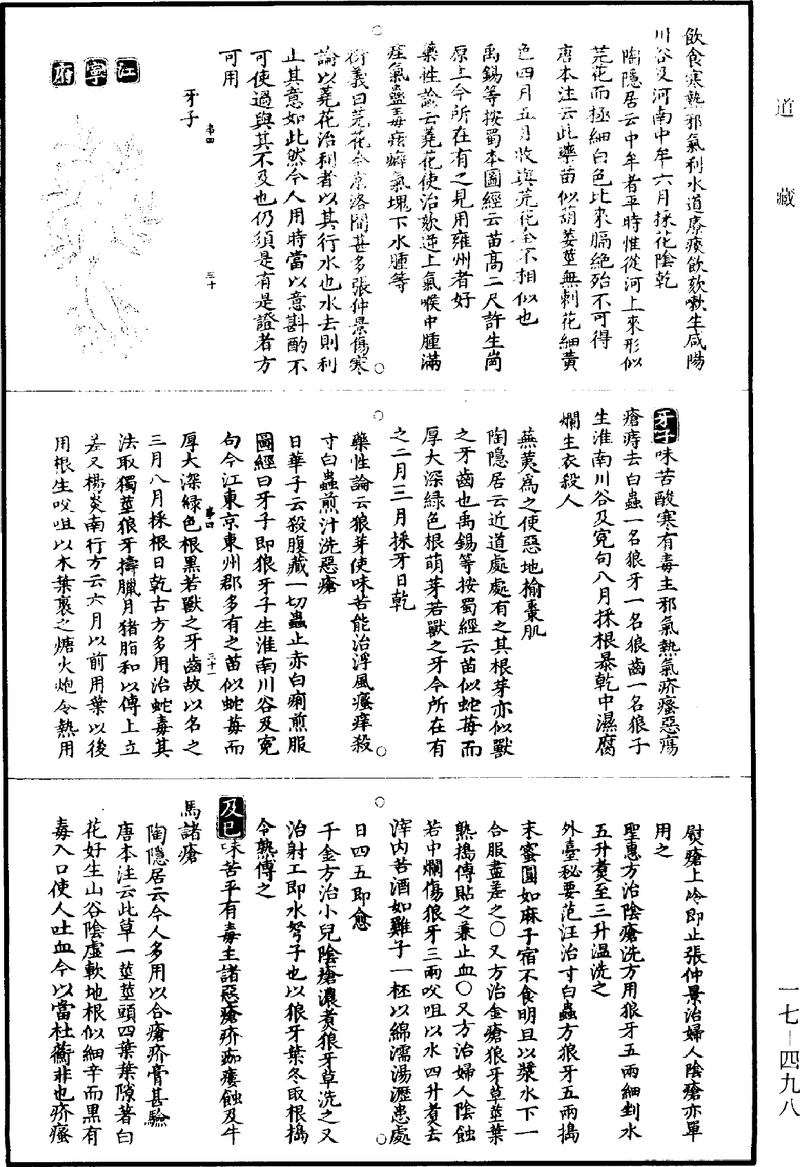 道藏
飲食寒熱邪氣利水道療痰飲欬嗽生咸陽
川谷及河南中牟六月採花陰乾
陶隱居云中牟者平時惟從河上來形似
芫花而極細白色比來隔絕殆不可得
唐本注云此藥苗似胡荽莖無刺花細黃
色四月五月收與芫花全不相似也
禹錫等按蜀本圖經云苗高二尺許生崗
原上今所在有之見用雍州者好
藥性論云蕘花使治欬逆上氣喉中腫滿
疰氣蠱毒痃癖氣塊下水腫等
衍義曰蕘花今京洛間甚多張仲景傷寒
論以蕘花治利者以其行水也水去則利
止其意如此然今人用時當以意斟酌不
可使過與其不及也仍須是有是證者方
可用
牙子
江寧府
牙子味苦酸寒有毒主邪氣熱氣疥瘙惡瘍
瘡痔去白蟲一名狼牙一名狼齒一名狼子
生淮南川谷及冤句八月採根暴乾中濕腐
爛生衣殺人
蕪荑為之使惡地榆棗肌
陶隱居云近道處處有之其根芽亦似獸
之牙齒也禹錫等按蜀經云苗似蛇莓而
厚大深綠色根萌芽若獸之牙今所在有
之二月三月採牙日乾
藥性論云狼芽使味苦能治浮風瘙痒殺
寸白蟲煎汁洗惡瘡
日華子云殺腹藏一切蟲止赤白痢煎服
圖經曰牙子即狼牙子生淮南川谷及冤
句今江東京東州郡多有之苗似蛇莓而
厚大深綠色根黑若獸之牙齒故以名之
三月八月採根日乾古方多用治蛇毒其
法取獨莖狼牙擣臘月猪脂和以傅上立
差又楊炎南行方云六月以前用葉以後
用根生㕮咀以木葉裹之煻火炮令熱用
熨瘡上冷即止張仲景治婦人陰瘡亦單
用之
聖惠方治陰瘡洗方用狼牙五兩細剉水
五升煑至三升溫洗之
外臺秘要范汪治寸白蟲方狼牙五兩搗
末蜜圓如麻子宿不食明旦以漿水下一
合服盡差之○又方治金瘡狼牙草莖葉
熟搗傅貼之兼止血○又方治婦人陰蝕
若中爛傷狼牙三兩㕮咀以水四升煑去
滓內苦酒如雞子一杯以綿濡湯瀝患處
日四五即愈
千金方治小兒陰瘡濃煑狼牙草洗之又
治射工即水弩子也以狼牙葉冬取根搗
令熟傅之
及已味苦平有毒主諸惡瘡疥痂瘻蝕及牛
馬諸瘡
陶隱居云今人多用以合瘡疥膏甚驗
唐本注云此草一莖莖頭四葉葉隙著白
花好生山谷陰虛軟地根似細辛而黑有
毒入口使人吐血今以當杜蘅非也疥瘙
一七—四九八